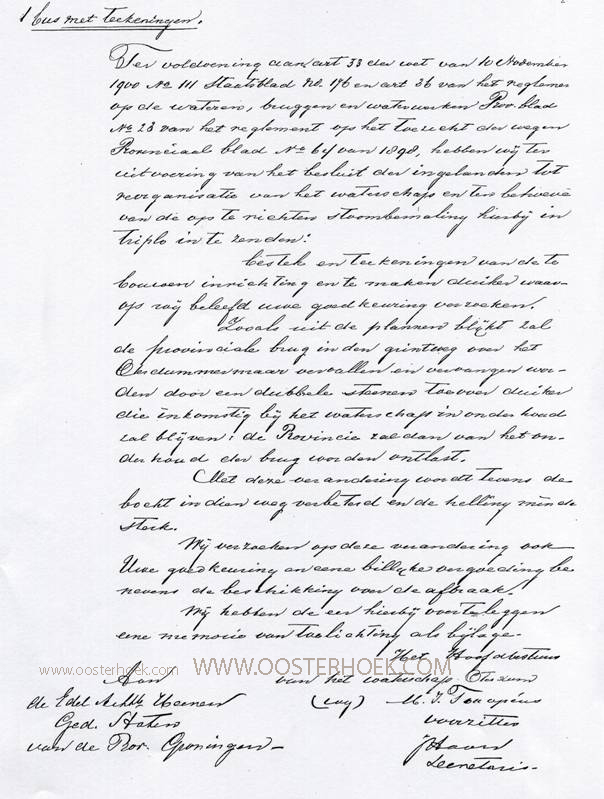 1 bus met teekeningen.
Ter voldoening aan art 33 der wet van 10 November
1900 No 111 Staatsblad No. 176 en art 36 van het reglement
op de wateren, bruggen en waterwerken Prov. blad
No 23 van het reglement op het toezicht der wegen
Provinciaal blad No 64 van 1898, hebben wij ter
uitvoering van het besluit der ingelanden tot
reorganisatie van het waterschap en ten behoeve
van de op te richten stoombemaling hierbij in
triplo in te zenden:
bestek en teekeningen van de te
bouwen inrichting en te maken duiker waar-
op wij beleefd uwe goedkeuring verzoeken.
Zooals uit de plannen blijkt zal
de provinciale brug in den grintweg over het
Oterdummermaar vervallen en vervangen wor-
den door een dubbele steenen toevoer duiker
die inkomstig bij het waterschap in onderhoud
zal blijven; de Provincie zal dan van het on-
derhoud der brug worden ontlast.
Met deze verandering wordt tevens de
bocht in dien weg verbeterd en de helling minde
sterk.
Wij verzoeken op deze verandering ook
Uwe goedkeuring en eene billijke vergoeding be
nevens de beschikking over de afbraak.
Wij hebben de eer hierbij over te leggen
eene memorie van toelichting als bijlage.
Het Hoofdbestuur
www.oosterhoek.com WWW.OOSTERHOEK.COM
Aan van het waterschap Oterdum
de Edel Achtb Heeren (wg) M. J.
Ged. Staten voorzitter
van de Prov. Groningen
Secretaris.